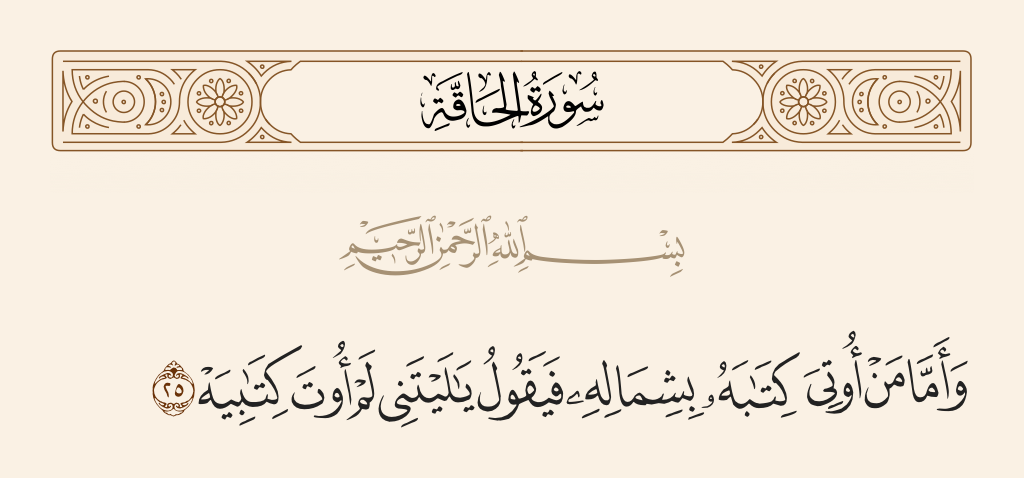 سُورَةُ الحَاقَّةِ
بِسْمِ ٱللَّهِ ٱلرَّحْمَٰنِ ٱلرَّحِيمِ
وَأَمَّا مَنْ أُوتِىَ كِتَٰبَهُۥ بِشِمَالِهِۦ فَيَقُولُ يَٰلَيْتَنِى لَمْ أُوتَ كِتَٰبِيَهْ ٢٥